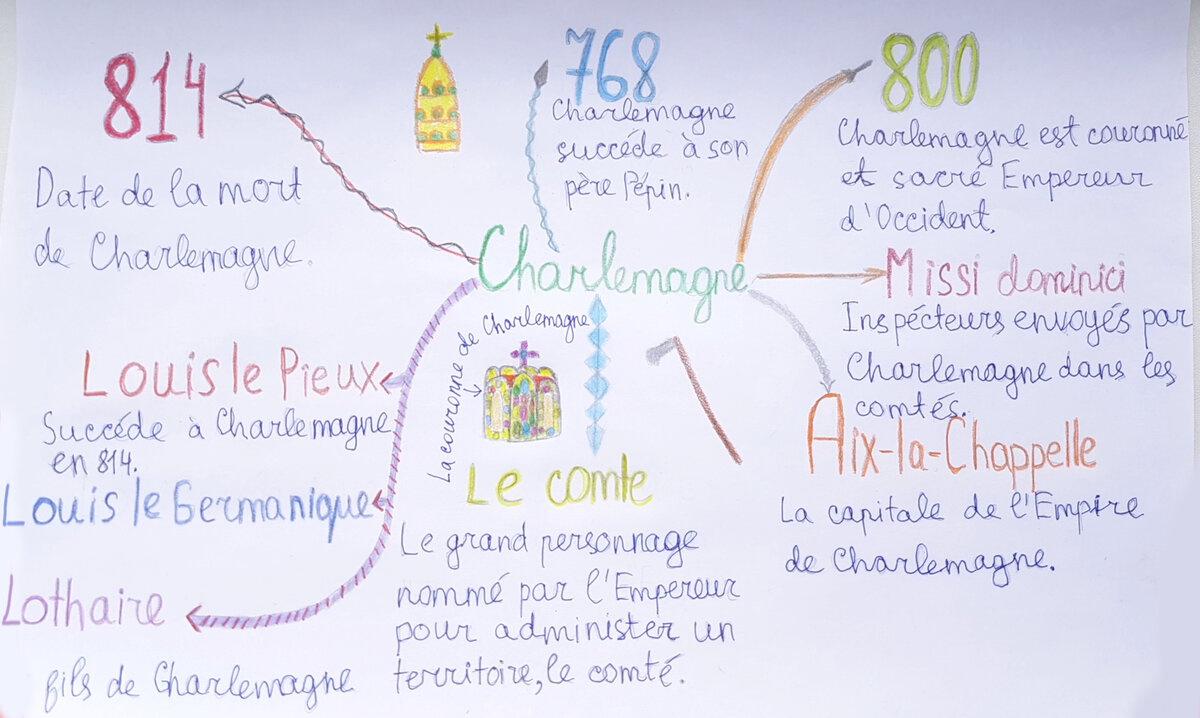 814
Date de la mort
de Charlemagne.
768
Charlemagne
succéde à son
père Pépin.
800
Charlemagne est couronné
et sacré Empereur
d'Occident.
Charlemagne
Missi dominici
Inspécteurs envoyés par
Charlemagne dans les
comtés.
Aix-la-Chappelle
La capitale de l'Empire
de Charlemagne.
La couronne de Charlemagne
Le comte
Le grand personnage
nommé par l'Empereur
pour administer un
territoire, le comté.
Louis le Pieux
Succéde à Charlemagne
en 814.
Louis le Germanique
Lothaire
fils de Charlemagne